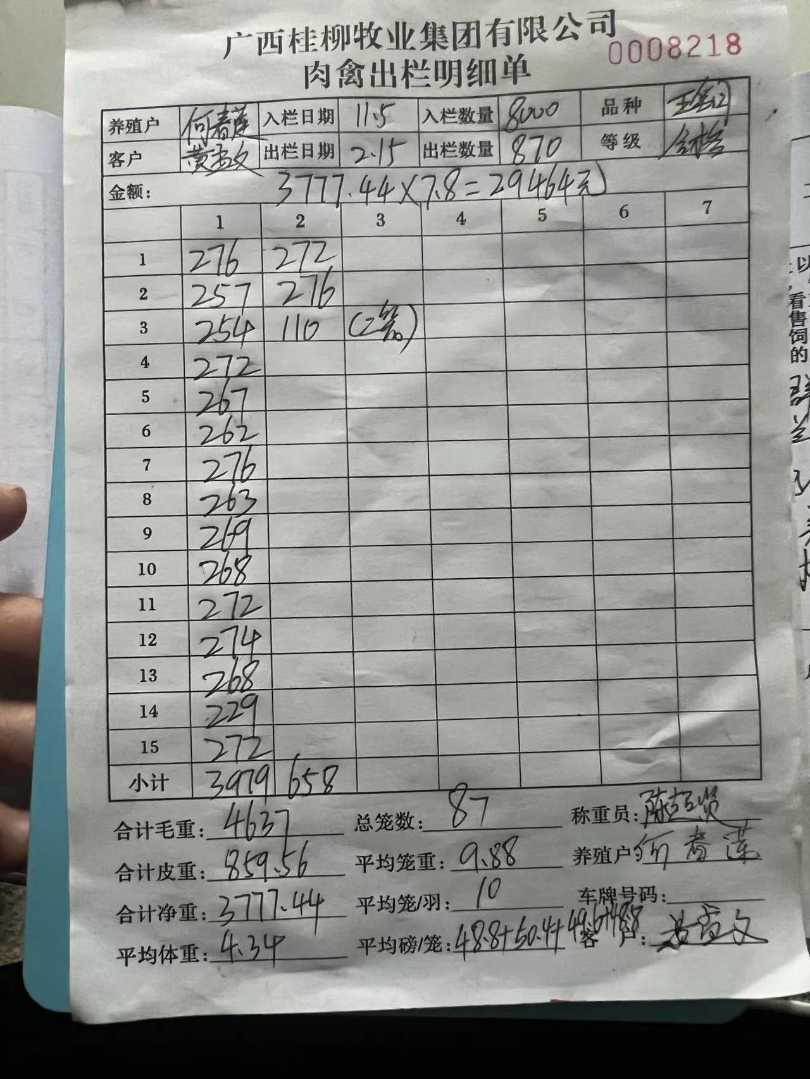 广西桂柳牧业集团有限公司
0008218
肉禽出栏明细单
养殖户 何春莲 入栏日期 11.5 入栏数量 8000 品种
客户 黄孟文 出栏日期 2.15 出栏数量 870 等级
金额: 3777.44×7.8=29464元
1 2 3 4 5 6 7
1 276 272
2 257 276
3 254 110 (2笼)
4 272
5 267
6 262
7 276
8 263
9 269
10 268
11 272
12 274
13 268
14 229
15 272
小计 3979 658
合计毛重: 4637 总笼数: 87 称重员:
合计皮重: 859.56 平均笼重: 9.88 养殖户: 何春莲
合计净重: 3777.44 平均笼/羽: 10 车牌号码:
平均体重: 4.34 平均磅/笼: 48.8+50.4+49.6+48.8 客户:
以
看
售
饲
的